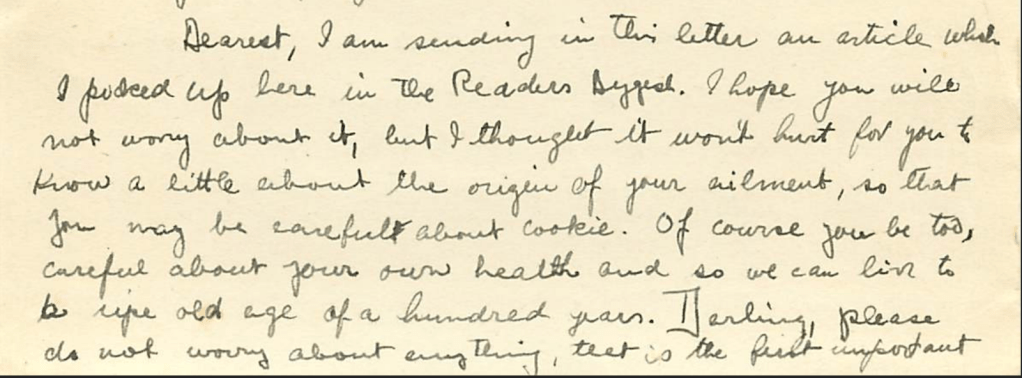 Dearest, I am sending in this letter an article which
I picked up here in the Readers Dygest. I hope you will
not worry about it, but I thought it won't hurt for you to
know a little about the origin of your ailment, so that
you may be careful about cookie. Of course you be too,
careful about your own health and so we can live to
a ripe old age of a hundred years. Darling, please
do not worry about anything, that is the first important